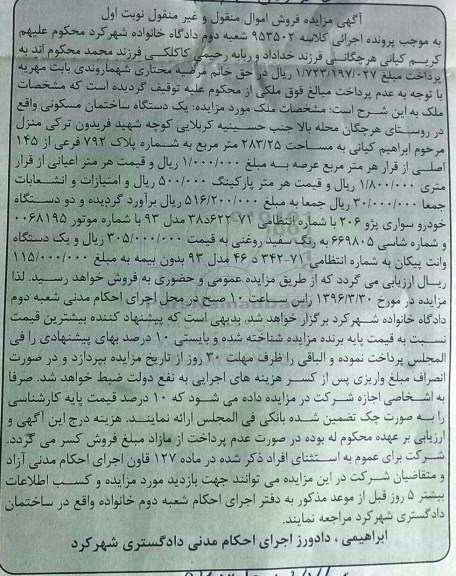 آگهی مزایده فروش اموال منقول و غیر منقول نوبت اول
به موجب پرونده اجرائی کلاسه ۹۵۳۵۰۲ شعبه دوم دادگاه خانواده شهرکرد محکوم علیهم
کریم کیانی هرچگانی فرزند خداداد و ربابه رحیمی کاکلکی فرزند محمد محکوم اند به
پرداخت مبلغ ۱/۷۲۳/۱۹۷/۰۲۷ ریال در حق خانم مرضیه مختاری شهماروندی بابت مهریه
با توجه به عدم پرداخت مبالغ فوق ملکی از محکوم علیه توقیف گردیده است که مشخصات
ملک به این شرح است: مشخصات ملک مورد مزایده: یک دستگاه ساختمان مسکونی واقع
در روستای هرچگان محله بالا جنب حسینیه کربلایی کوچه شهید فریدون ترکی منزل
مرحوم ابراهیم کیانی به مساحت ۲۸۳/۲۵ متر مربع به شماره پلاک ۷۹۲ فرعی از ۱۴۵
اصلی از قرار هر متر مربع عرصه به مبلغ ۱/۰۰۰/۰۰۰ ریال و قیمت هر متر اعیانی از قرار
متری ۱/۸۰۰/۰۰۰ ریال و قیمت هر متر پارکینگ ۵۰۰/۰۰۰ ریال و امتیازات و انشعابات
جمعا ۳۰/۰۰۰/۰۰۰ ریال جمعا به مبلغ ۵۱۶/۲۰۰/۰۰۰ ریال برآورد گردیده و دو دستگاه
خودرو سواری پژو ۲۰۶ با شماره انتظامی ۷۱-۶۲۲د۳۸ مدل ۹۳ با شماره موتور ۰۰۶۸۱۹۵
و شماره شاسی ۶۶۹۸۰۵ به رنگ سفید روغنی به قیمت ۳۰۵/۰۰۰/۰۰۰ ریال و یک دستگاه
وانت پیکان به شماره انتظامی ۷۱-۳۴۲ د ۴۶ مدل ۹۳ بدون بیمه به مبلغ ۱۱۵/۰۰۰/۰۰۰
ریال ارزیابی می گردد که از طریق مزایده عمومی و حضوری به فروش خواهد رسید. لذا
مزایده در مورخ ۱۳۹۶/۳/۳۰ راس ساعت ۱۰ صبح در محل اجرای احکام مدنی شعبه دوم
دادگاه خانواده شهرکرد برگزار خواهد شد. بدیهی است که پیشنهاد کننده بیشترین قیمت
نسبت به قیمت پایه برنده مزایده شناخته شده و بایستی ۱۰ درصد بهای پیشنهادی را فی
المجلس پرداخت نموده و الباقی را ظرف مهلت ۳۰ روز از تاریخ مزایده بپردازد و در صورت
انصراف مبلغ واریزی پس از کسر هزینه های اجرایی به نفع دولت ضبط خواهد شد. صرفا
به اشخاصی اجازه شرکت در مزایده داده می شود که ۱۰ درصد قیمت پایه کارشناسی
را به صورت چک تضمین شده بانکی فی المجلس ارائه نمایند. هزینه درج این آگهی و
ارزیابی بر عهده محکوم له بوده در صورت عدم پرداخت از مازاد مبلغ فروش کسر می گردد.
شرکت برای عموم به استثنای افراد ذکر شده در ماده ۱۲۷ قانون اجرای احکام مدنی آزاد
و متقاضیان شرکت در این مزایده می توانند جهت بازدید مورد مزایده و کسب اطلاعات
بیشتر ۵ روز قبل از موعد مذکور به دفتر اجرای احکام شعبه دوم خانواده واقع در ساختمان
دادگستری شهرکرد مراجعه نمایند.
ابراهیمی ، دادورز اجرای احکام مدنی دادگستری شهرکرد